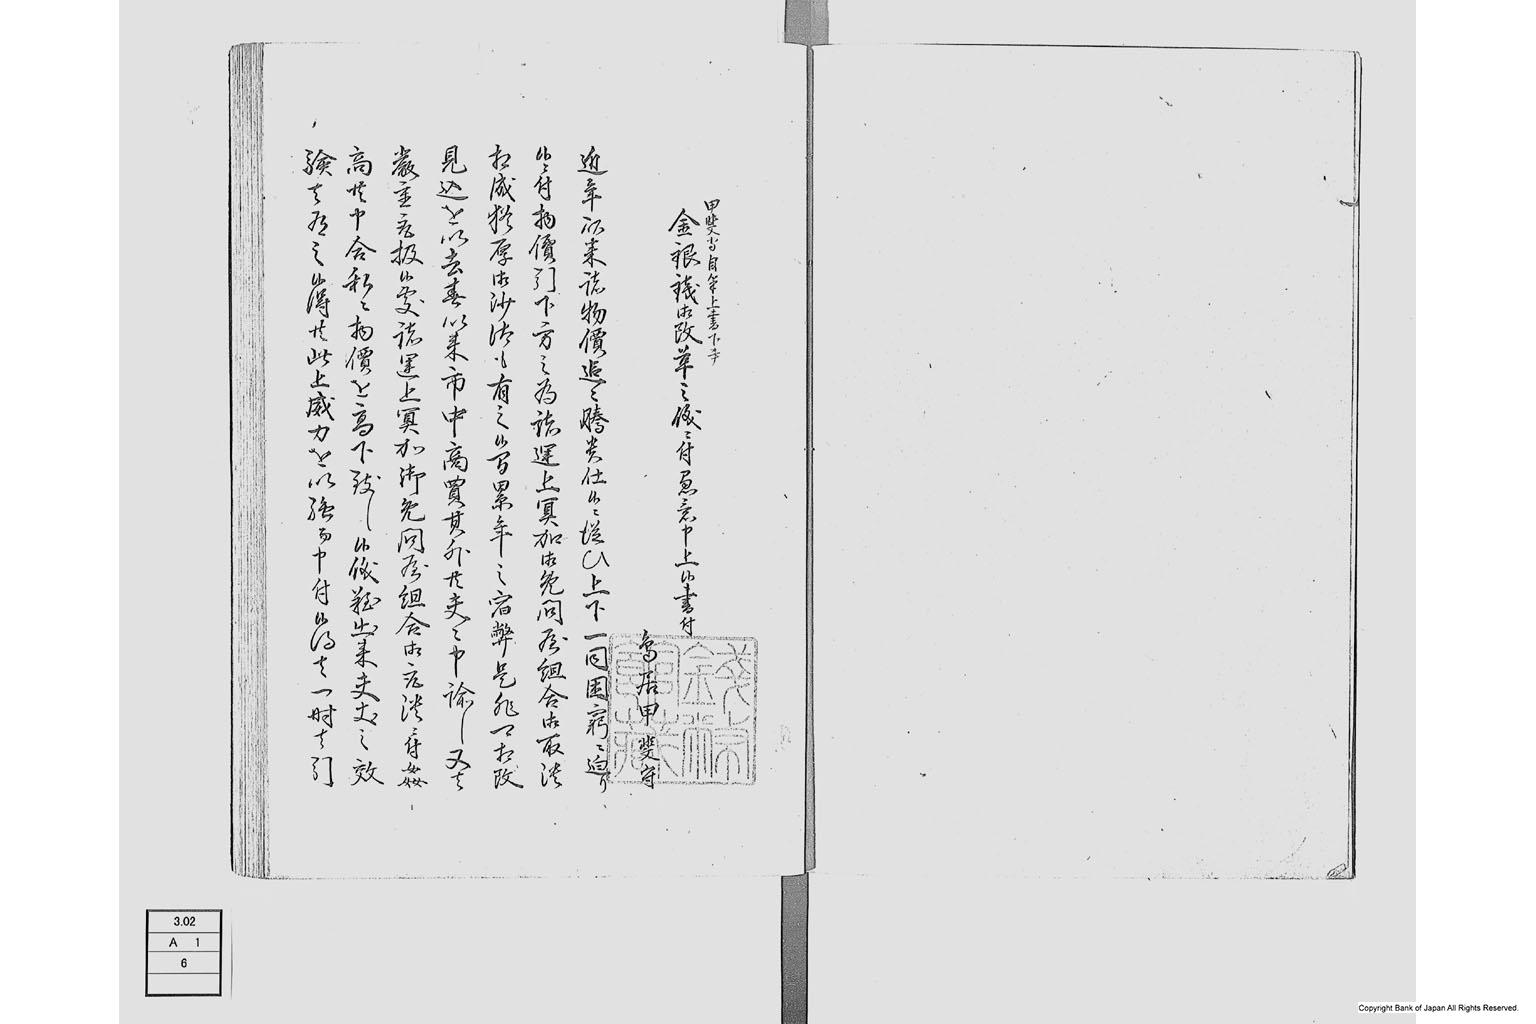 甲斐守自筆上書下ケ
金銀銭御改革之儀ニ付愚意申上候書付
鳥居甲斐守
近年以来諸物價追々騰貴仕候ニ従ひ上下一同困窮ニ迫り
候ニ付物價引下方之為諸運上冥加御免問屋組合御取潰
相成猶厚御沙汰も有之候間累年之宿弊是非可相改
見込を以去春以来市中商買其外共吏々申諭し又者
嚴重取扱候処諸運上冥加御免問屋組合御取潰ニ付姦
商共申合私ニ物價を高下致し候儀難出来夫丈之效
驗者有之候得共此上威力を以強而申付候得者一時者引
銭幣館蔵
3.02
A 1
6
Copyright Bank of Japan All Rights Reserved.